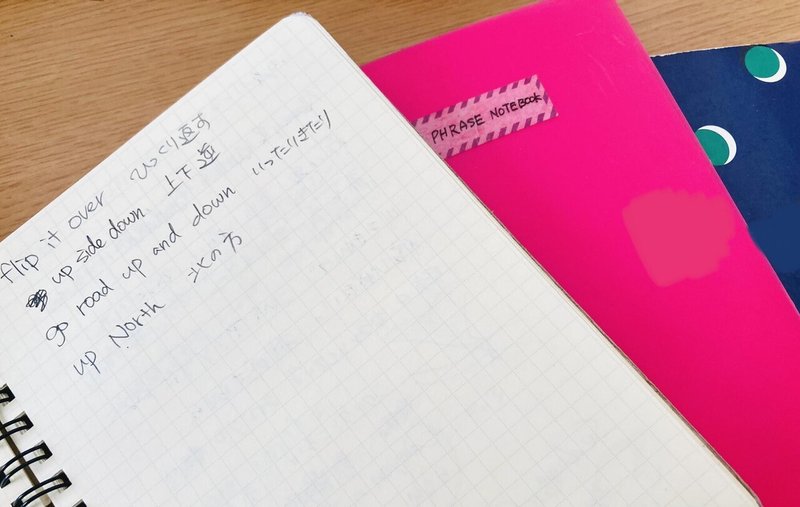 flip it over ひっくり返す
up side down 上下逆
go road up and down いったりきたり
up North 北の方
PHRASE NOTEBOOK